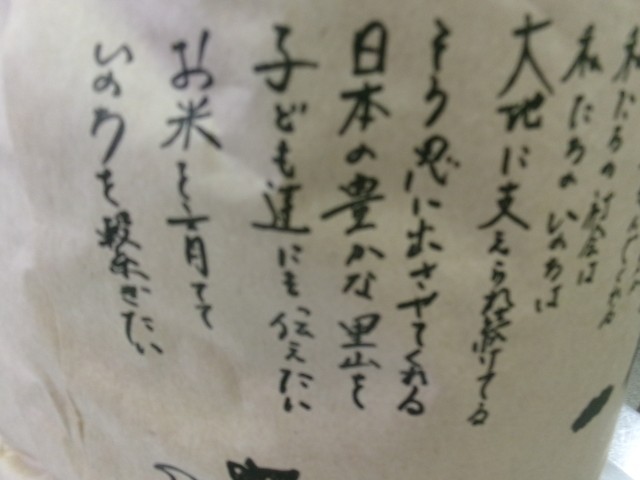 私たちの社会は
私たちのいのちは
大地に支えられ続けてる
そう思い出させてくれる
日本の豊かな里山を
子ども達にも伝えたい
お米を育てて
いのちを繋ぎたい